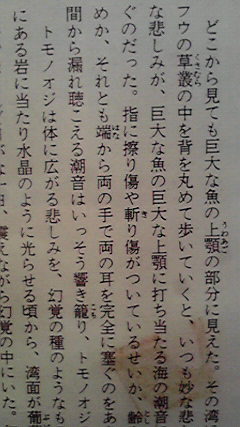 どこから見ても巨大な魚の上顎の部分に見えた。その湾
フウの草叢の中を背を丸めて歩いていくと、いつも妙な悲
な悲しみが、巨大な魚の巨大な上顎に打ち当たる海の潮音
ぐのだった。指に擦り傷や斬り傷がついているせいか、齢
めか、それとも端から両の手で両の耳を完全に塞ぐのをあ
間から漏れ聴こえる潮音はいっそう響き籠り、トモノオジ
トモノオジは体に広がる悲しみを、幻覚の種のようなも
にある岩に当たり水晶のように光らせる頃から、湾面が葡
震えながら幻覚の中にいた。